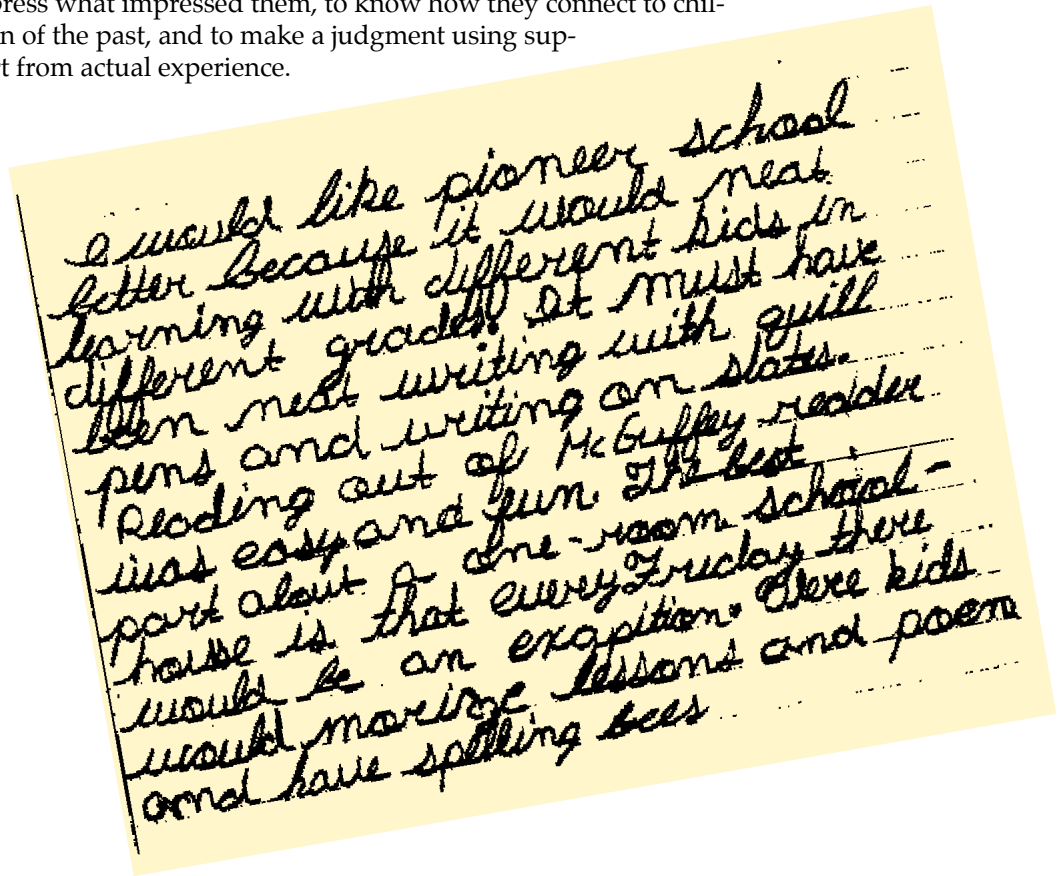 press what impressed them, to know how they connect to chil-
n of the past, and to make a judgment using sup-
t from actual experience.
I would like pioneer school
better because it would neat
learning with different kids in
different grades. It must have
been neat writing with quill
pens and writing on slates.
Reading out of McGuffey reader
was easy and fun. The best
part about A one-room school-
house is that every Friday there
would be an exapition. Here kids
would morize lessons and poem
and have spelling bees